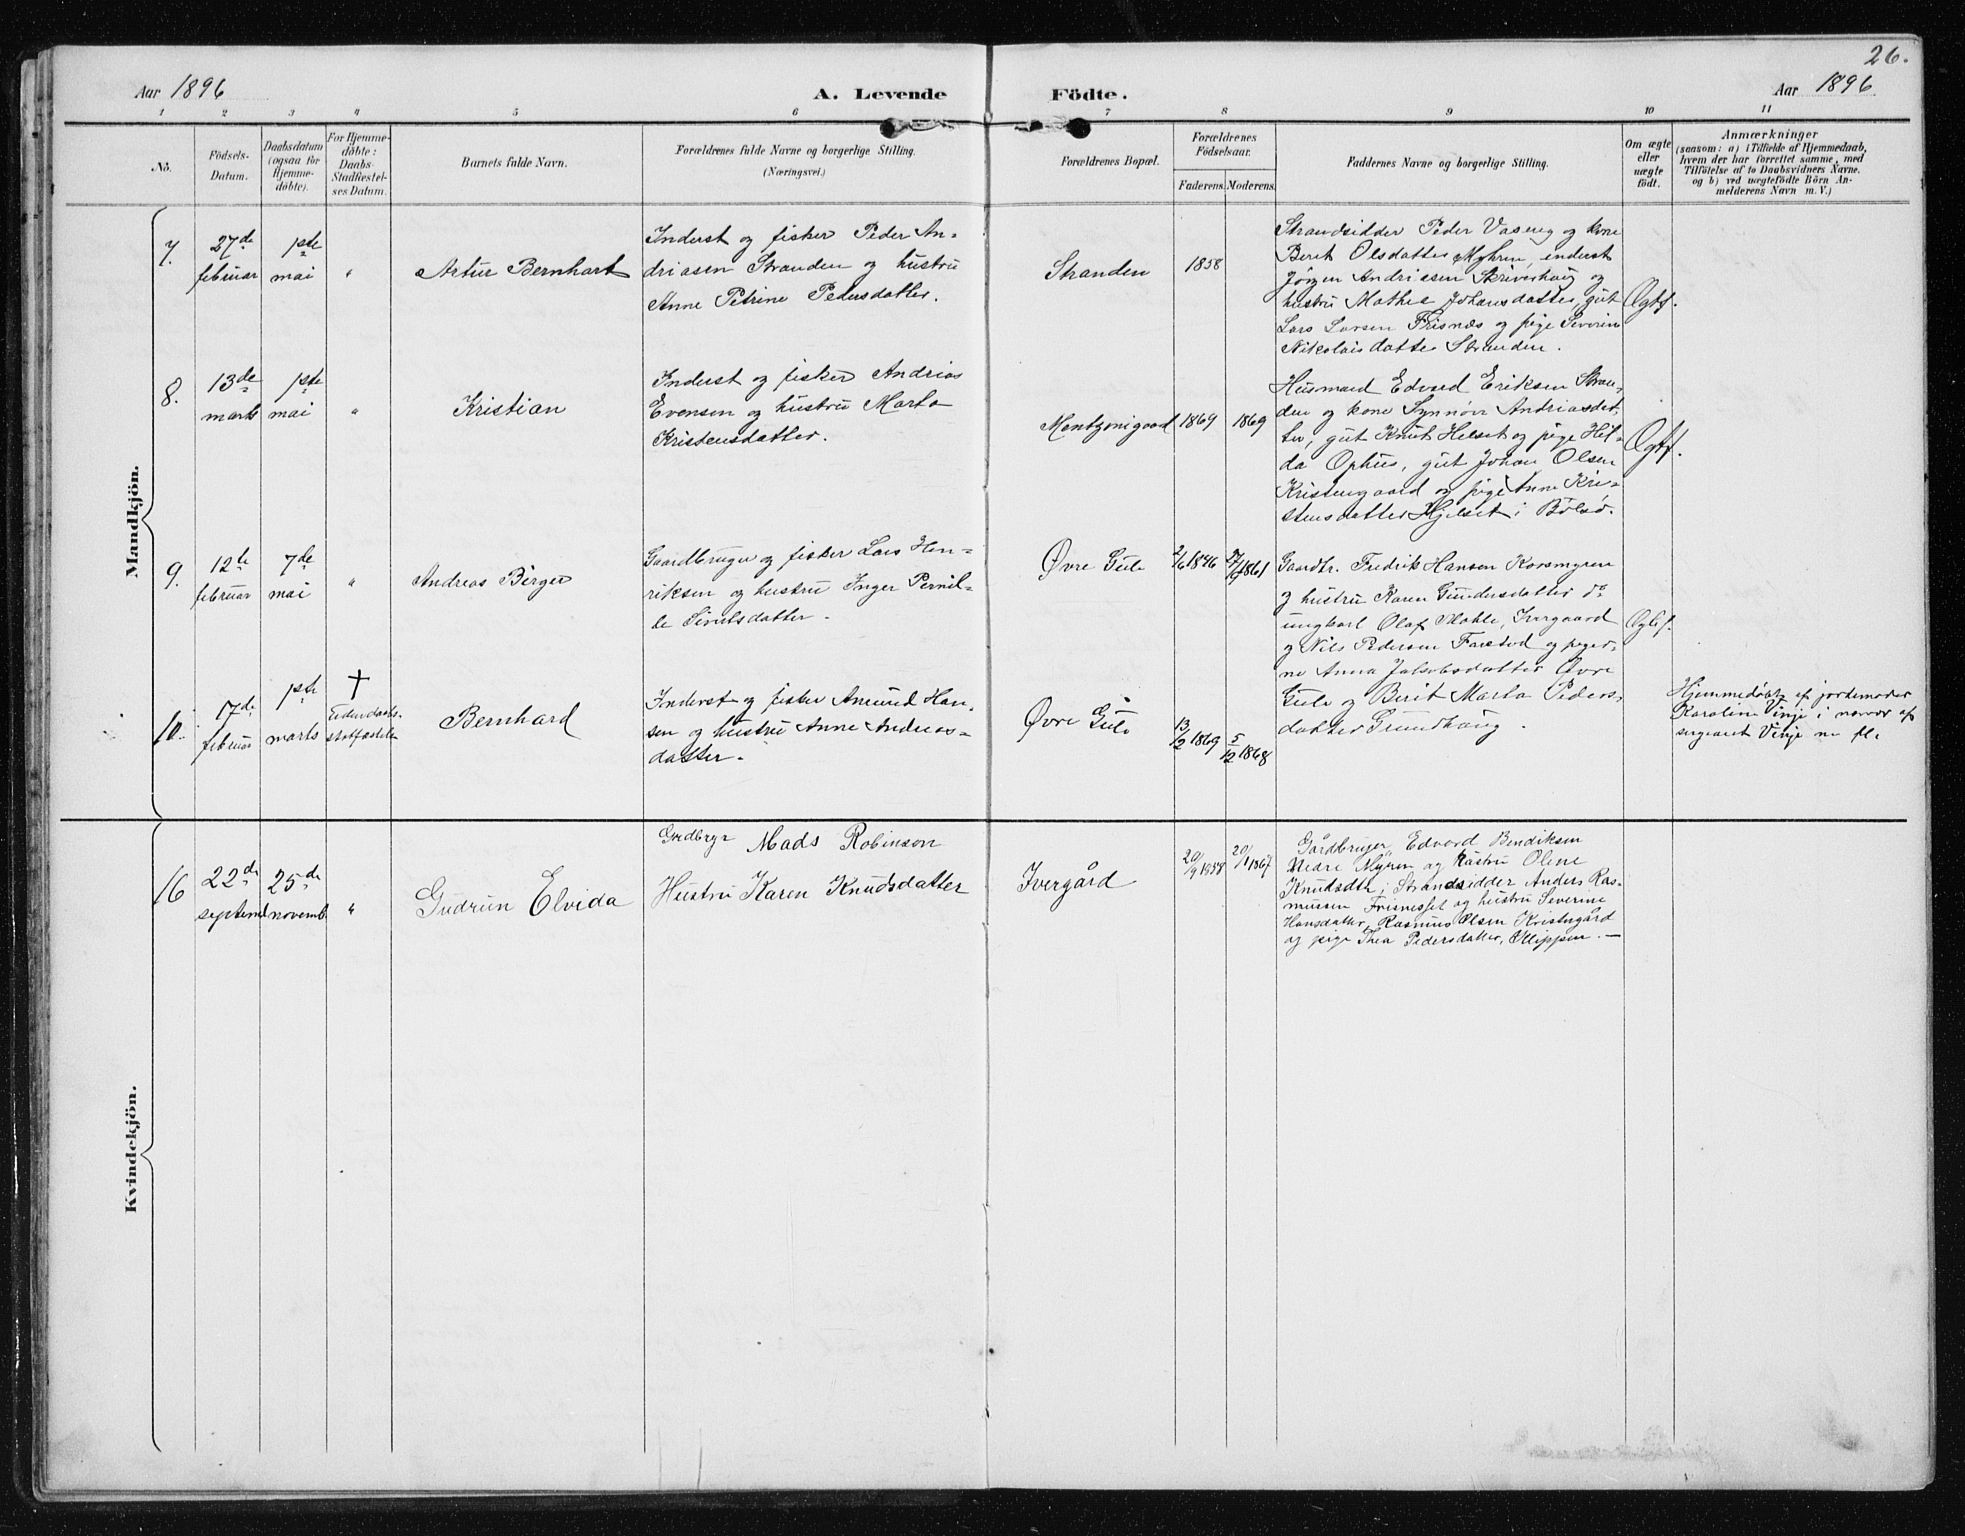 26.
Aar 1896 A. Levende Födte. Aar 1896
1 2 3 4 5 6 7 8 9 10 11
No.
Födsels-
Datum.
Daabsdatum
(ogsaa for
Hjemme-
döbte).
For Hjemme-
döbte:
Daabs-
Stadfæstel-
ses Datum.
Barnets fulde Navn.
Forældrenes fulde Navne og borgerlige Stilling.
(Næringsvei.)
Forældrenes Bopæl.
Forældrenes
Födselsaar.
Faderens. Moderens.
Faddernes Navne og borgerlige Stilling.
Om ægte
eller
uægte
födt.
Anmærkninger
(saasom: a) i Tilfælde af Hjemmedaab,
hvem der har forrettet samme, med
Tilföielse af to Daabsvidners Navne.
og b) ved uægtefödte Börn An-
melderens Navn m. V.)
Mandkjön.
7.
27de
februar
1ste
mai
"
Artur Bernhart
Inderst og fisker Peder An-
driasen Stranden og hustru
Anne Petrine Pedersdatter.
Stranden
1858
Strandsidder Peder Vaseng og kone
Berit Olsdatter Myhren, enderst
Jörgen Andriasen Skriverhaug og
hustru Mathea Johansdatter, gut
Lars Larsen Frisnæs og pige Severine
Nikolaisdatter Stranden.
Ægtf.
8.
13de
marts
1ste
mai
"
Kristian
Inderst og fisker Andrias
Evensen og hustru Marta
Kristensdatter.
Mentzonigaard
1869
1869
Husmand Edvard Eriksen Stran-
den og kone Synnöv Andriasdat-
ter, gut Knut Helset og pige Hil-
da Ophus, gut Johan Olsen
Kristengaard og pige Anne Kri-
stensdatter Hjelset i Bolsö.
Ægtf.
9.
12te
februar
7de
mai
"
Andreas Birger
Gaardbruger og fisker Lars Hen-
riksen og hustru Inger Pernil-
le Sivertsdatter.
Øvre Gule
2/6 1846
1861
Gaardbr. Fredrik Hansen Korsmyren
og hustru Karen Gundersdatter do
ungkarl Olaf Mahle, Ivergaard
og Nils Pedersen Farstad og piger-
ne Anna Jakobsdatter Øvre
Gule og Berit Marta Peders-
datter Grundhaug.
Ægtef.
10.
17de
februar
1ste
marts
†
Bernhard
Inderst og fisker Amund Han-
sen og hustru Anne Andreas-
datter.
Øvre Gule
13/2 1869
5/12 1868
Hjemmedöbt af jordemoder
Karoline Vinje i nærvær af
sergeant Vinje m. fl.
Kvindekjön.
16
22de
septemb
25de
novemb.
"
Gudrun Elvida
Grdbrgr Mads Robinson
Hustru Karen Knudsdatter
Ivergård
20/9 1858
20/1 1867
Gårdbruger Edvard Bendiksen
Nedre Myren og hustru Oline
Knudsdtr, Strandsidder Anders Ras-
mussen Frisnesset og hustru Severine
Hansdatter, Rasmus Olsen Kristengård
og pige Thea Pedersdatter, Klippen. —